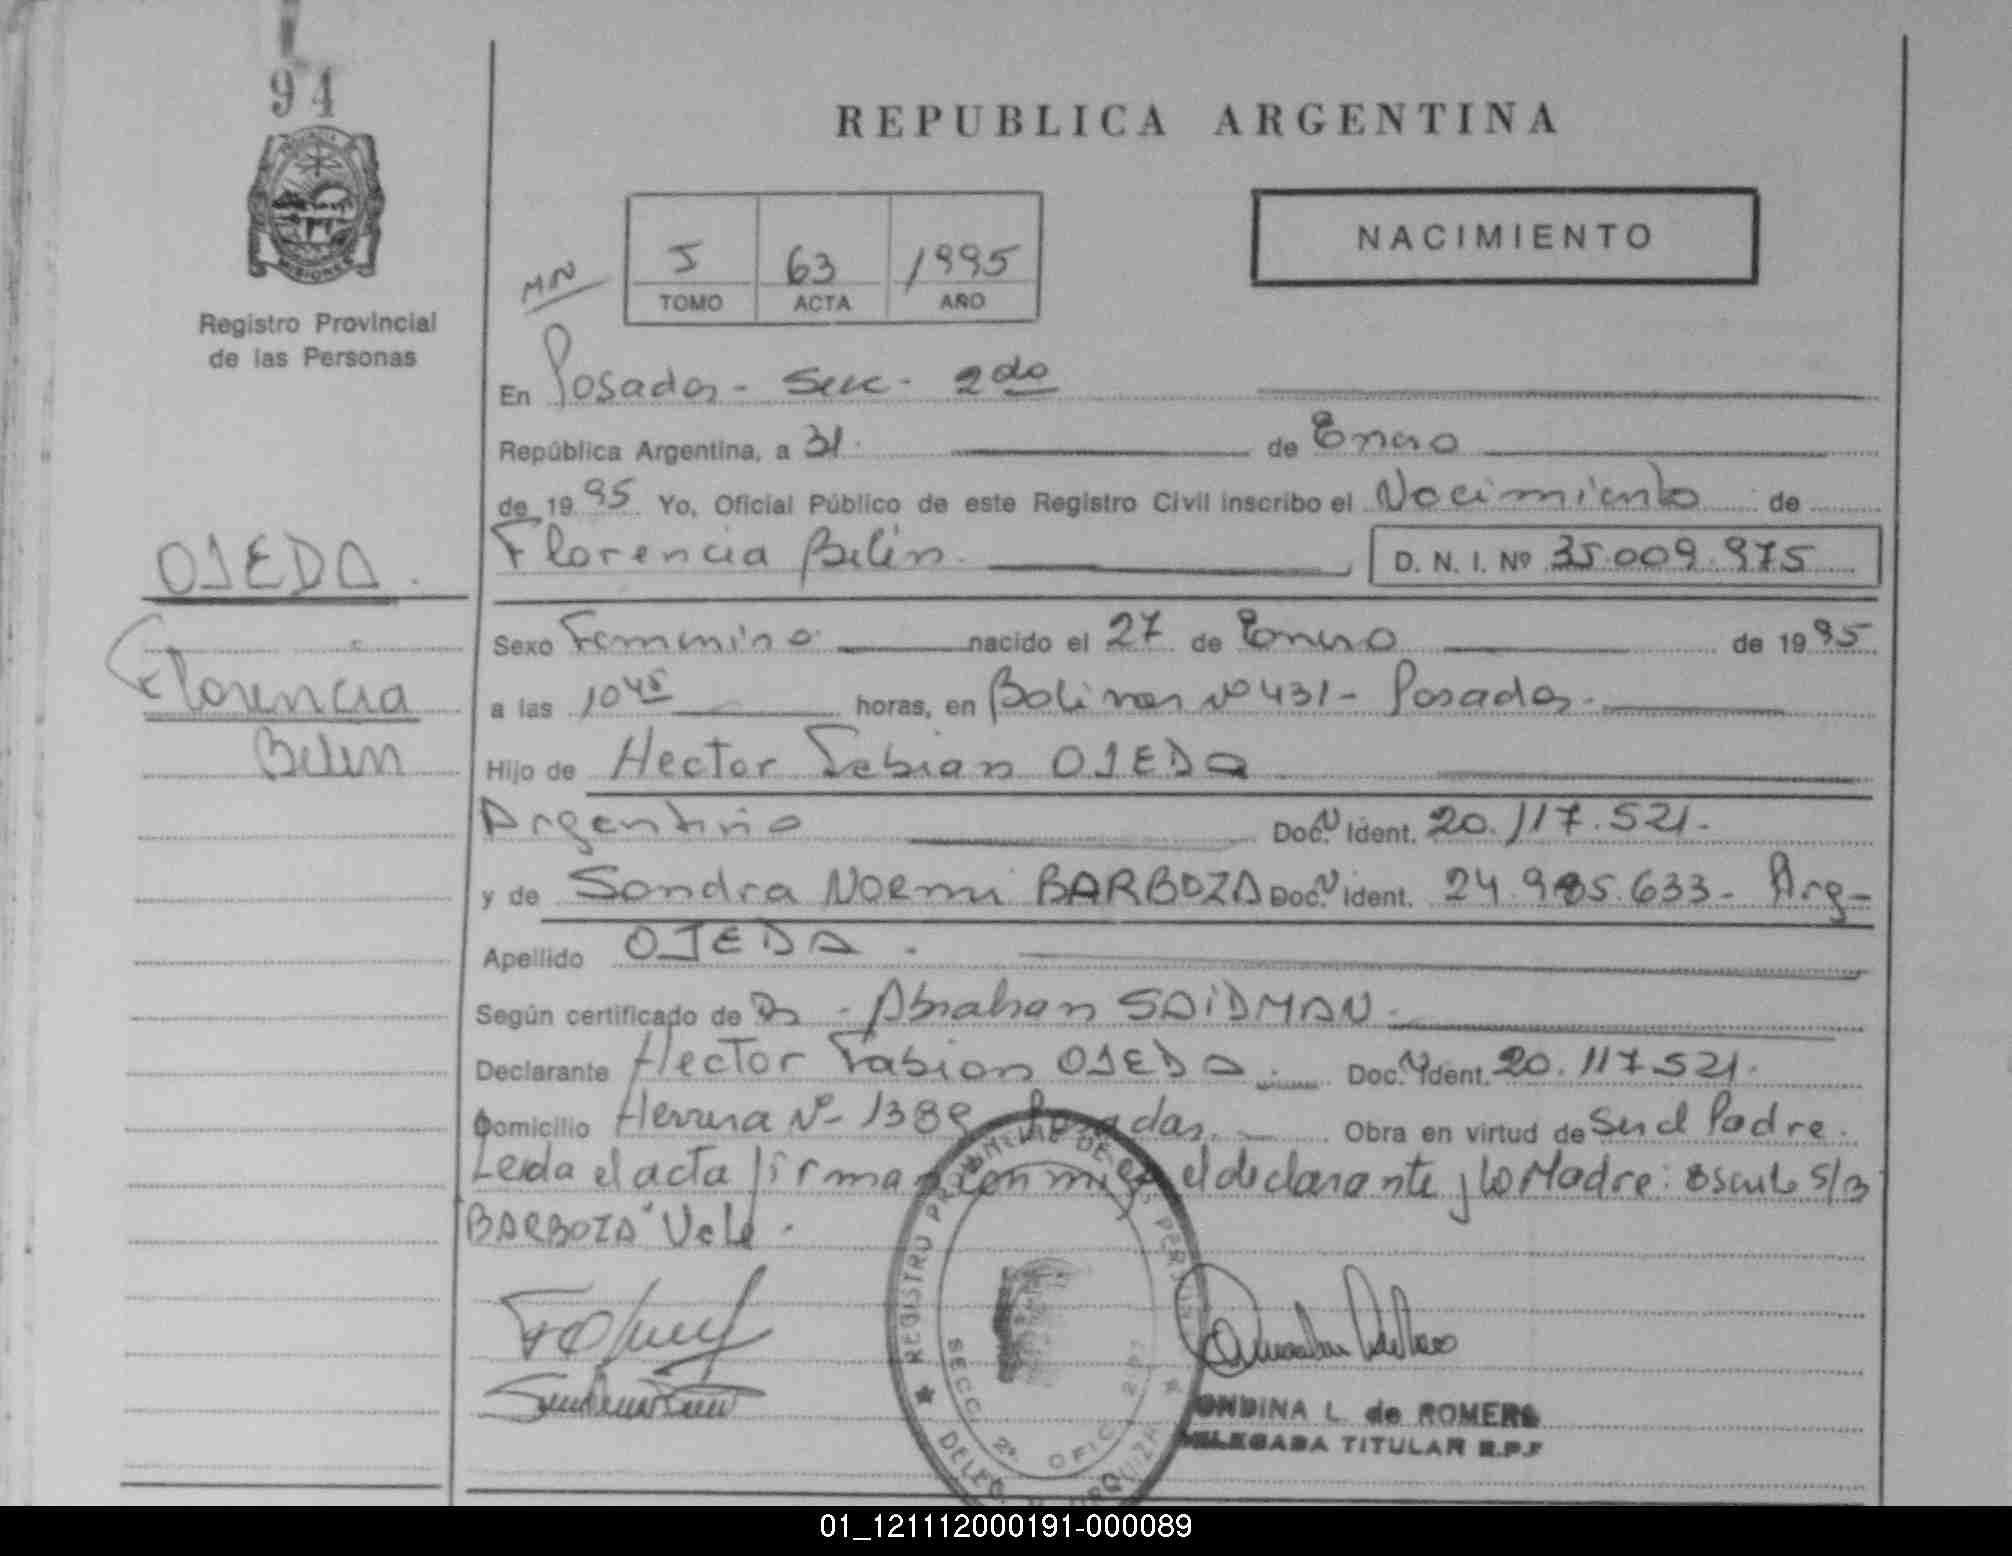 94
REPUBLICA ARGENTINA
MISIONES
Registro Provincial
de las Personas
MN
5 63 1995
TOMO ACTA AÑO
NACIMIENTO
En Posadas - Secc - 2da
República Argentina, a 31. de Enero
de 1995 Yo, Oficial Público de este Registro Civil inscribo el Nacimiento de
Florencia Belén. D. N. I. Nº 35.009.975
OJEDA.
Florencia
Belén
Sexo Femenino nacido el 27 de Enero de 1995
a las 10 45 horas, en Bolivar nº 431 - Posadas.
Hijo de Hector Fabian OJEDA
Argentino Doc. N Ident. 20.117.521.
y de Sandra Noemi BARBOZA Doc. N Ident. 24.985.633- Arg-
Apellido OJEDA.
Según certificado de Dr - Abraham SAIDMAN.
Declarante Hector Fabian OJEDA Doc. N Ident. 20.117.521.
Domicilio Herrera Nº- 1389 Posadas. Obra en virtud de Ser el Padre.
Leida el acta firman con migo el declarante y la Madre: s/b
BARBOZA" Vale.
REGISTRO PROVINCIAL DE LAS PERSONAS
SECC. 2ª OFIC. 2ª
DELEG. URQUIZA
ONDINA L. de ROMERO
DELEGADA TITULAR R.P.P
01_121112000191-000089